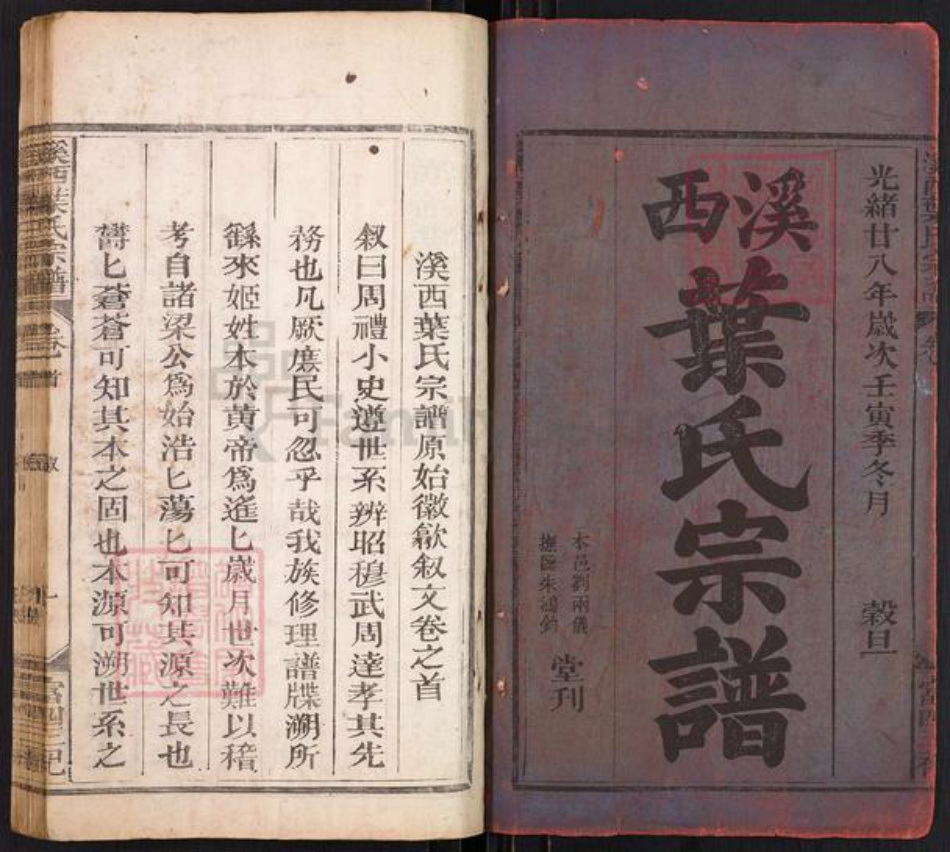 光緒廿八年歲次壬寅季冬月 榖旦
溪西
葉氏宗譜
本邑劉兩儀
撫匯朱鴻鈞
堂刊
溪西葉氏宗譜原始徽歙叙文卷之首
叙曰周禮小史遵世系辨昭穆武周達孝其先
務也凡厥庶民可忽乎哉我族修理譜牒溯所
繇來姬姓本於黄帝為遙匕歲月世次難以稽
考自諸梁公為始浩匕蕩匕可知其源之長也
欝匕蒼蒼可知其本之固也本源可溯世系之
溪西葉氏宗譜